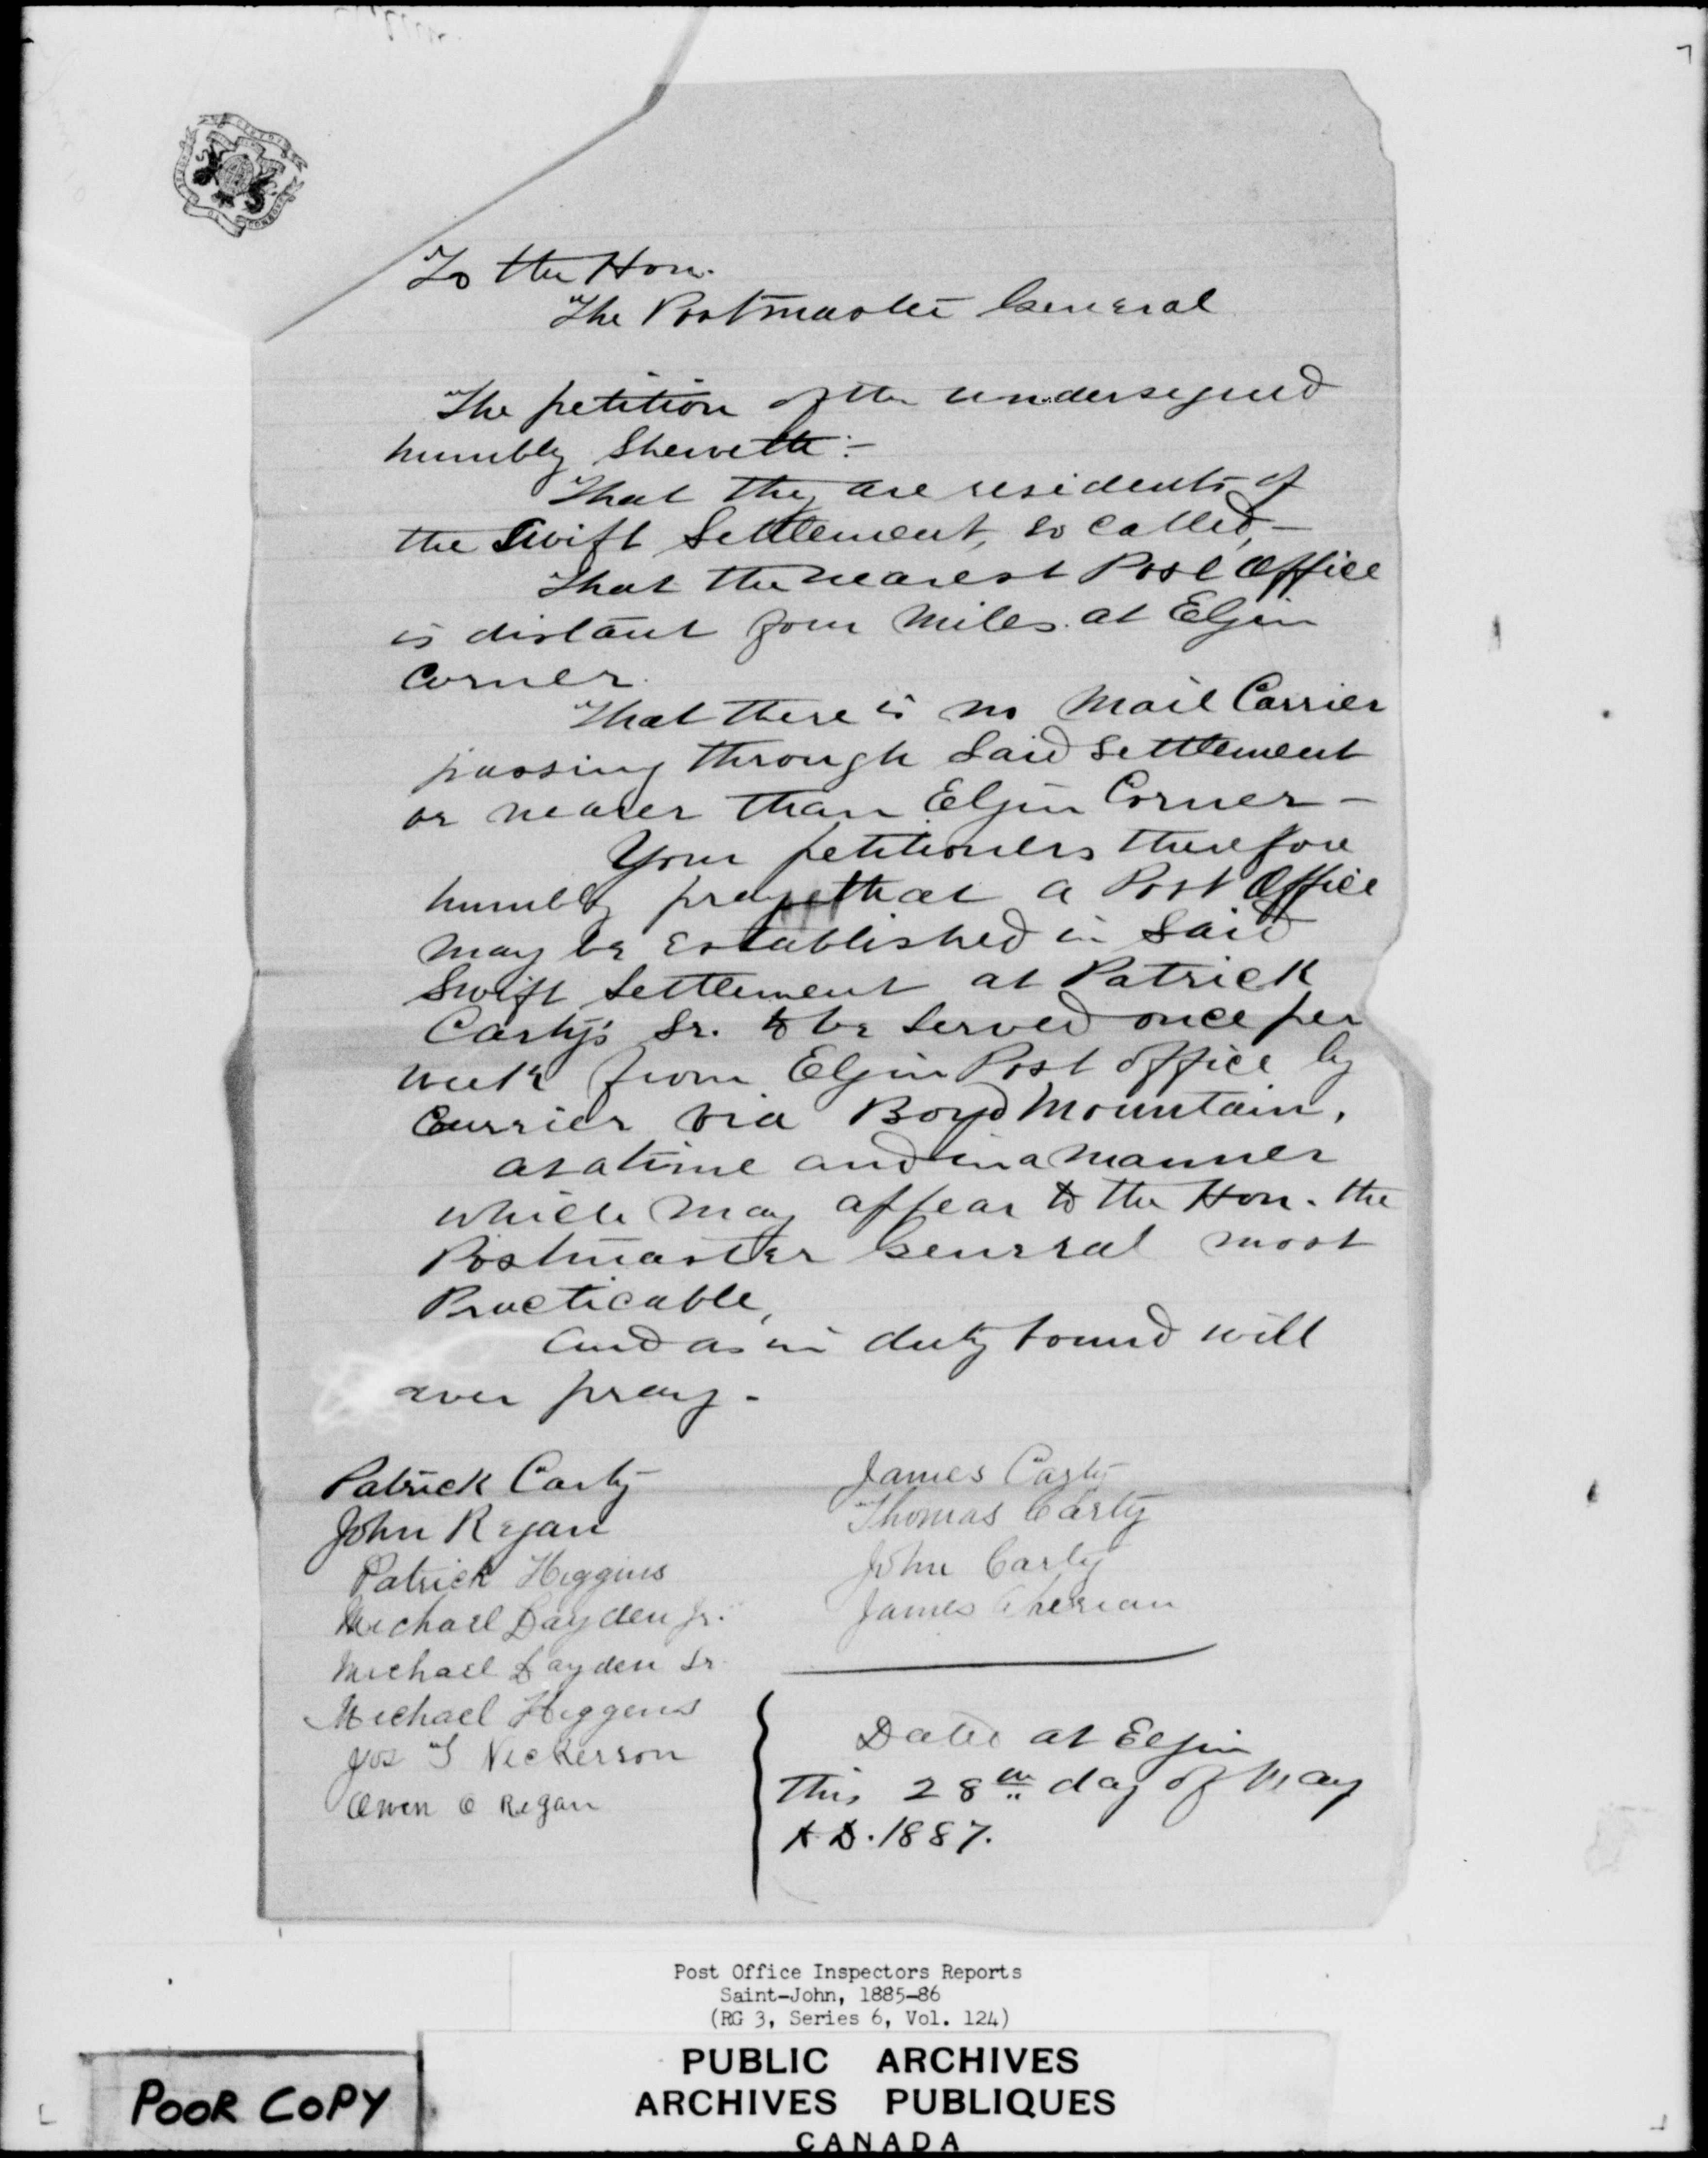 To the Hon.
The Postmaster General
The petition of the undersigned
humbly Sheweth:-
That they are residents of
the Swift Settlement, so called,-
That the nearest Post Office
is distant four miles at Elgin
Corner.
That there is no Mail Carrier
passing through Said Settlement
or nearer than Elgin Corner-
Your petitioners therefore
humbly pray that a Post Office
may be established in Said
Swift Settlement at Patrick
Carty's Sr. to be served once per
week from Elgin Post office by
Courrier via Boyd Mountain,
at a time and in a manner
which may appear to the Hon. the
Postmaster General most
Practicable,
And as in duty bound will
ever pray-
Patrick Carty
John Regan
Patrick Higgins
Michael Layden Jr.
Michael Layden Sr
Michael Higgens
Jos T Nickerson
Owen O Regan
James Carty
Thomas Carty
John Carty
James
Dated at Elgin
This 28th day of May
A.D. 1887.
Post Office Inspectors Reports
Saint-John, 1885-86
(RG 3, Series 6, Vol. 124)
PUBLIC ARCHIVES
ARCHIVES PUBLIQUES
CANADA
POOR COPY